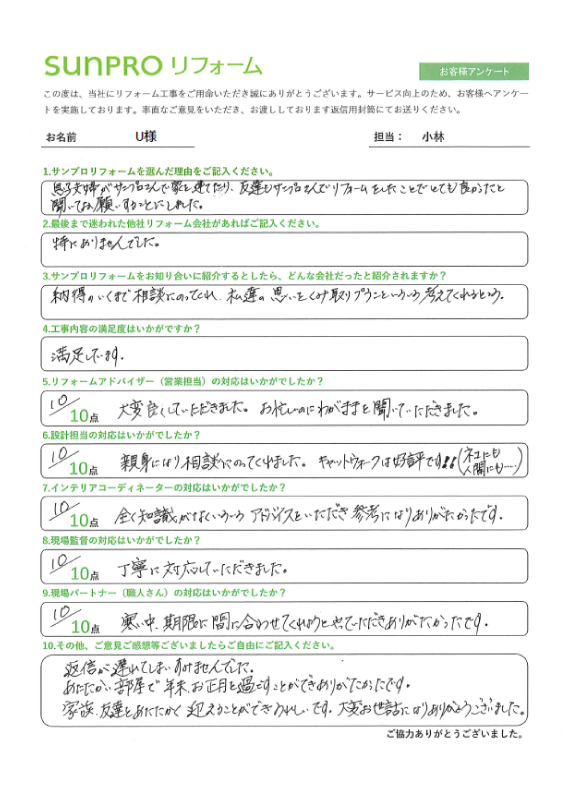 SUNPRO リフォーム
お客様アンケート
この度は、当社にリフォーム工事をご用命いただき誠にありがとうございます。サービス向上のため、お客様へアンケー
トを実施しております。率直なご意見をいただき、お渡ししております返信用封筒にてお送りください。
お名前 U様 担当： 小林
1.サンプロリフォームを選んだ理由をご記入ください。
息子夫婦がサンプロさんで家を建てたり、友達もサンプロさんでリフォームをしたことでとても良かったと
聞いてお願いすることにしました。
2.最後まで迷われた他社リフォーム会社があればご記入ください。
特にありませんでした。
3.サンプロリフォームをお知り合いに紹介するとしたら、どんな会社だったと紹介されますか？
納得がいくまで相談にのってくれ、私達の思いをくみ取りプランをいろいろ考えてくれるという。
4.工事内容の満足度はいかがですか？
満足しています。
5.リフォームアドバイザー（営業担当）の対応はいかがでしたか？
10/10点 大変良くしていただきました。お忙しいのにわがままを聞いていただきました。
6.設計担当の対応はいかがでしたか？
10/10点 親身になり相談にのってくれました。キャットウォークは好評です!!(ネコにも
人間にも…)
7.インテリアコーディネーターの対応はいかがでしたか？
10/10点 全く知識がなくいろいろアドバイスをいただき参考になりありがたかったです。
8.現場監督の対応はいかがでしたか？
10/10点 丁寧に対応していただきました。
9.現場パートナー（職人さん）の対応はいかがでしたか？
10/10点 寒い中、期限に間に合わせてくれようとやっていただきありがたかったです。
10.その他、ご意見ご感想等ございましたらご自由にご記入ください。
返信が遅れてしまいすみませんでした。
あたたかい部屋で年末、お正月を過ごすことができありがたかったです。
家族、友達をあたたかく迎えることができうれしいです。大変お世話になりありがとうございました。
ご協力ありがとうございました。